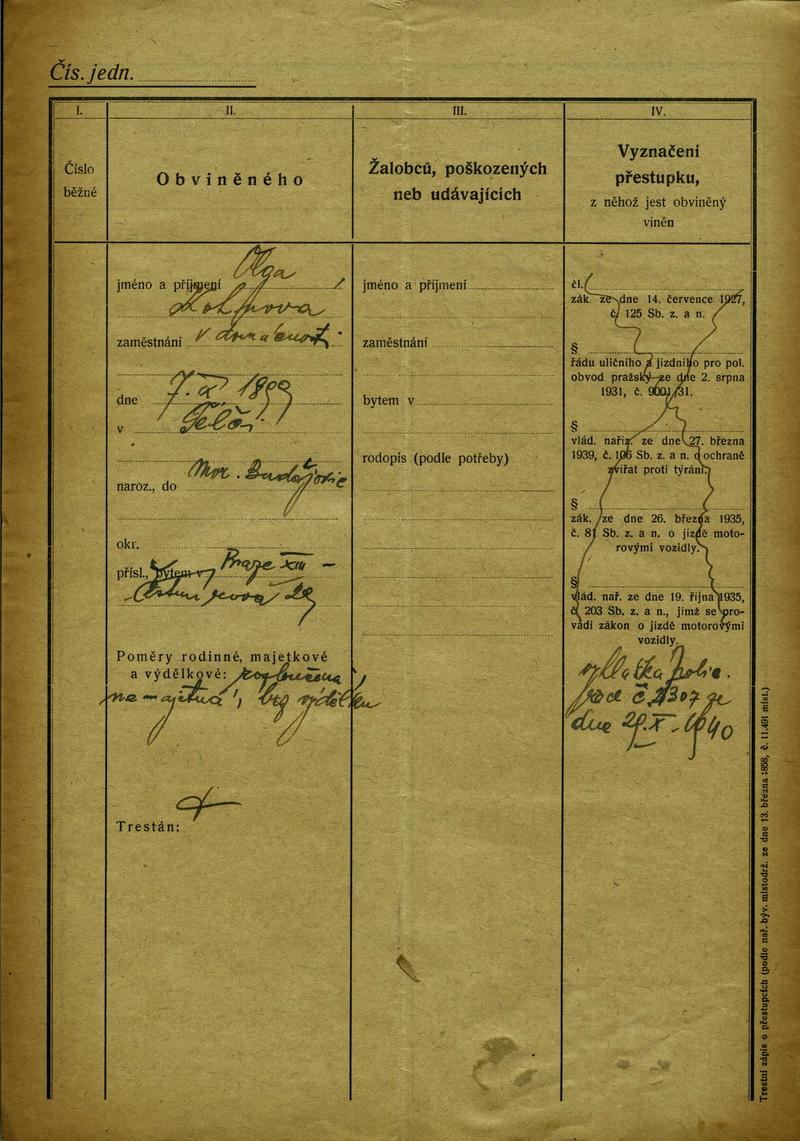 Čís. jedn.
I.
II.
III.
IV.
Číslo
běžné
Obviněného
Žalobců, poškozených
neb udávajících
Vyznačení
přestupku,
z něhož jest obviněný
viněn
Olga
jméno a příjmení
zaměstnání v domácnosti
dne 7. X 1899
v
Mor. Budějovice
naroz., do
okr.
přísl., bytem v Praze XII –
28
Poměry rodinné, majetkové
a výdělkové:
Trestán:
jméno a příjmení
zaměstnání
bytem v
rodopis (podle potřeby)
čl.
zák ze dne 14. července 1927,
č. 125 Sb. z. a n.
§
řádu uličního a jízdního pro pol.
obvod pražský ze dne 2. srpna
1931, č. 9001/31.
§
vlád. nařiz. ze dne 27. března
1939, č. 106 Sb. z. a n. o ochraně
zvířat proti týrání.
§
zák. ze dne 26. března 1935,
č. 81 Sb. z. a n. o jízdě moto-
rovými vozidly.
§
vlád. nař. ze dne 19. října 1935,
č. 203 Sb. z. a n., jímž se pro-
vádí zákon o jízdě motorovými
vozidly.
vyhláška polic.
ze
dne X. 1940
Trestní zápis o přestupcích (podle nař. býv. místodrž. ze dne 13. března 1858, č. 11.491 míst.)